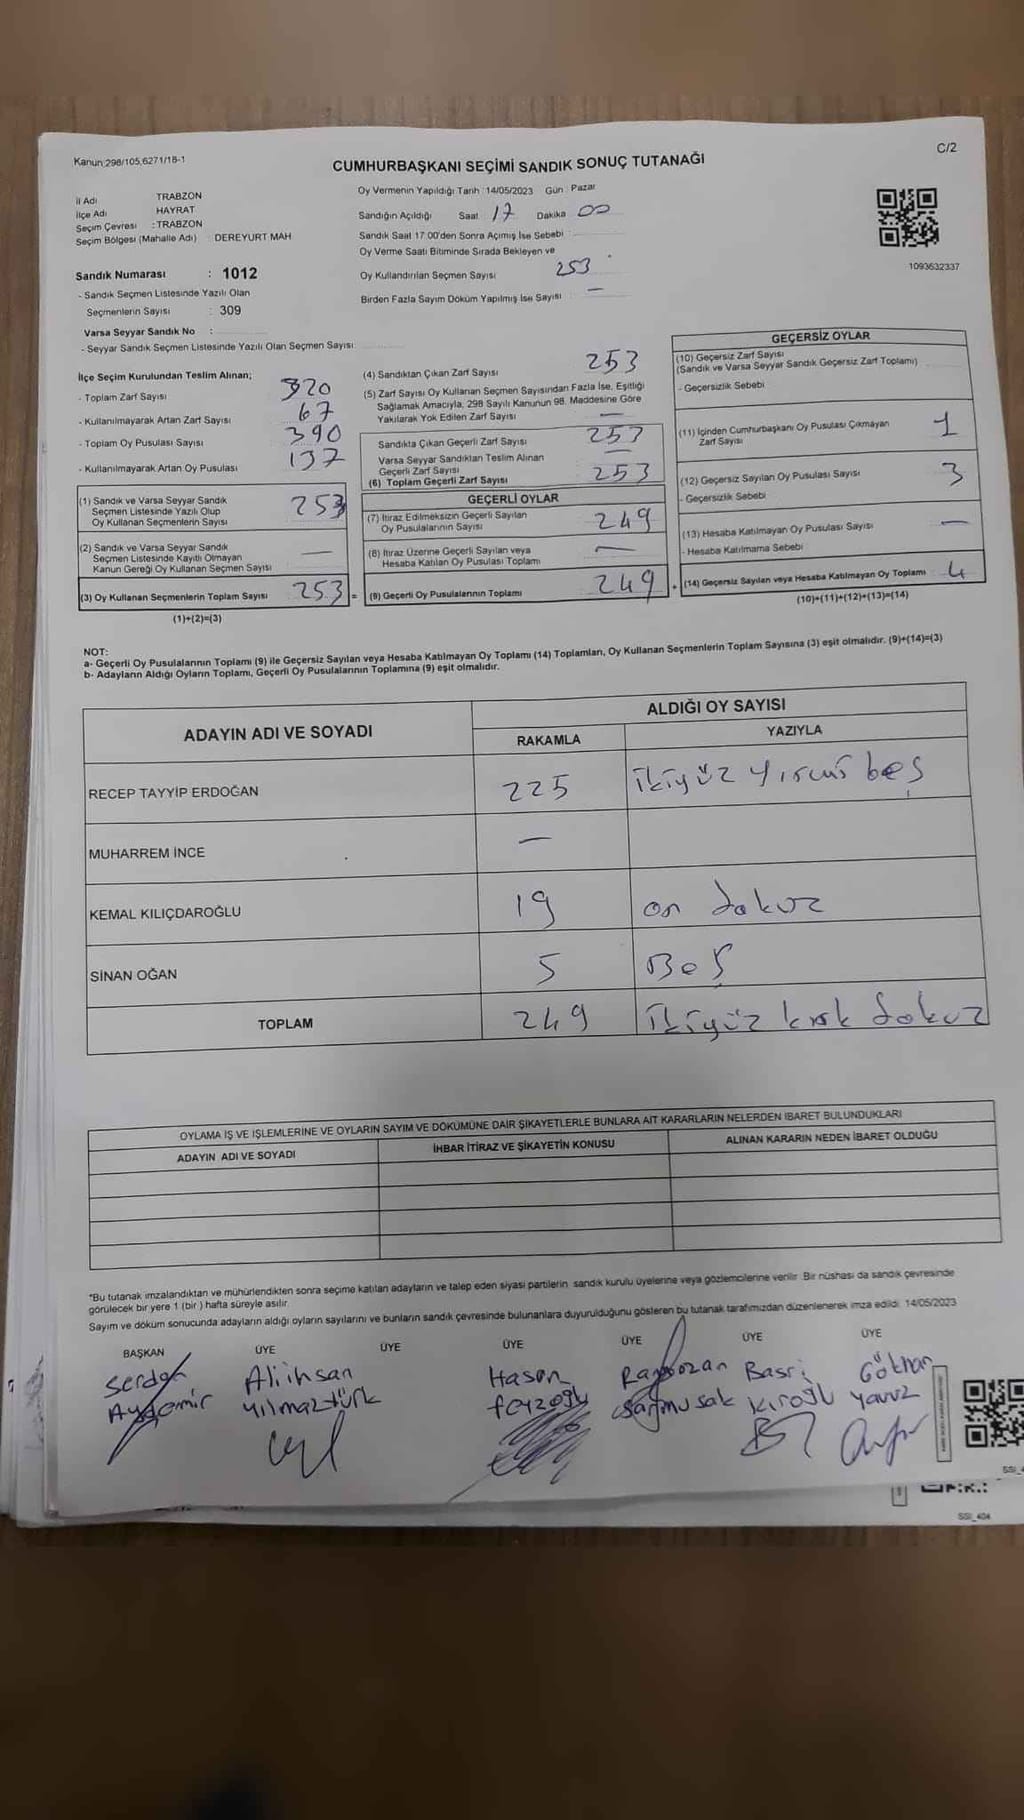 Kanun:298/105,6271/18-1
C/2
CUMHURBAŞKANI SEÇİMİ SANDIK SONUÇ TUTANAĞI
İl Adı TRABZON
İlçe Adı HAYRAT
Seçim Çevresi : TRABZON
Seçim Bölgesi (Mahalle Adı) : DEREYURT MAH
Sandık Numarası : 1012
- Sandık Seçmen Listesinde Yazılı Olan
Seçmenlerin Sayısı : 309
Varsa Seyyar Sandık No :
- Seyyar Sandık Seçmen Listesinde Yazılı Olan Seçmen Sayısı:
Oy Vermenin Yapıldığı Tarih : 14/05/2023 Gün : Pazar
Sandığın Açıldığı Saat 17 Dakika 00
Sandık Saat 17:00'den Sonra Açımış İse Sebebi :
Oy Verme Saati Bitiminde Sırada Bekleyen ve
Oy Kullandırılan Seçmen Sayısı 253
Birden Fazla Sayım Döküm Yapılmış İse Sayısı : —
1093632337
İlçe Seçim Kurulundan Teslim Alınan;
- Toplam Zarf Sayısı 320
- Kullanılmayarak Artan Zarf Sayısı 67
- Toplam Oy Pusulası Sayısı 390
- Kullanılmayarak Artan Oy Pusulası 137
(1) Sandık ve Varsa Seyyar Sandık
Seçmen Listesinde Yazılı Olup
Oy Kullanan Seçmenlerin Sayısı 253
(2) Sandık ve Varsa Seyyar Sandık
Seçmen Listesinde Kayıtlı Olmayan
Kanun Gereği Oy Kullanan Seçmen Sayısı —
(3) Oy Kullanan Seçmenlerin Toplam Sayısı 253 =
(1)+(2)=(3)
(4) Sandıktan Çıkan Zarf Sayısı 253
(5) Zarf Sayısı Oy Kullanan Seçmen Sayısından Fazla İse, Eşitliği
Sağlamak Amacıyla, 298 Sayılı Kanunun 98. Maddesine Göre
Yakılarak Yok Edilen Zarf Sayısı —
Sandıkta Çıkan Geçerli Zarf Sayısı 253
Varsa Seyyar Sandıktan Teslim Alınan
Geçerli Zarf Sayısı —
(6) Toplam Geçerli Zarf Sayısı 253
GEÇERLİ OYLAR
(7) İtiraz Edilmeksizin Geçerli Sayılan
Oy Pusulalarının Sayısı 249
(8) İtiraz Üzerine Geçerli Sayılan veya
Hesaba Katılan Oy Pusulası Toplamı —
(9) Geçerli Oy Pusulalarının Toplamı 249 +
GEÇERSİZ OYLAR
(10) Geçersiz Zarf Sayısı
(Sandık ve Varsa Seyyar Sandık Geçersiz Zarf Toplamı)
- Geçersizlik Sebebi
(11) İçinden Cumhurbaşkanı Oy Pusulası Çıkmayan
Zarf Sayısı 1
(12) Geçersiz Sayılan Oy Pusulası Sayısı 3
- Geçersizlik Sebebi
(13) Hesaba Katılmayan Oy Pusulası Sayısı —
- Hesaba Katılmama Sebebi
(14) Geçersiz Sayılan veya Hesaba Katılmayan Oy Toplamı 4
(10)+(11)+(12)+(13)=(14)
NOT:
a- Geçerli Oy Pusulalarının Toplamı (9) ile Geçersiz Sayılan veya Hesaba Katılmayan Oy Toplamı (14) Toplamları, Oy Kullanan Seçmenlerin Toplam Sayısına (3) eşit olmalıdır. (9)+(14)=(3)
b- Adayların Aldığı Oyların Toplamı, Geçerli Oy Pusulalarının Toplamına (9) eşit olmalıdır.
ADAYIN ADI VE SOYADI
ALDIĞI OY SAYISI
RAKAMLA YAZIYLA
RECEP TAYYİP ERDOĞAN 225 ikiyüz yirmi beş
MUHARREM İNCE —
KEMAL KILIÇDAROĞLU 19 on dokuz
SİNAN OĞAN 5 Beş
TOPLAM 249 ikiyüz kırk dokuz
OYLAMA İŞ VE İŞLEMLERİNE VE OYLARIN SAYIM VE DÖKÜMÜNE DAİR ŞİKAYETLERLE BUNLARA AİT KARARLARIN NELERDEN İBARET BULUNDUKLARI
ADAYIN ADI VE SOYADI İHBAR İTİRAZ VE ŞİKAYETİN KONUSU ALINAN KARARIN NEDEN İBARET OLDUĞU
*Bu tutanak imzalandıktan ve mühürlendikten sonra seçime katılan adayların ve talep eden siyasi partilerin sandık kurulu üyelerine veya gözlemcilerine verilir. Bir nüshası da sandık çevresinde
görülecek bir yere 1 (bir) hafta süreyle asılır.
Sayım ve döküm sonucunda adayların aldığı oyların sayılarını ve bunların sandık çevresinde bulunanlara duyurulduğunu gösteren bu tutanak tarafımızdan düzenlenerek imza edildi. 14/05/2023
BAŞKAN ÜYE ÜYE ÜYE ÜYE ÜYE ÜYE
Serdar Aliihsan Hasan Ramazan Basri Gökhan
Aydemir Yılmaztürk feyzoğlu Sarımusak Kıroğlu Yavuz
SSI_404